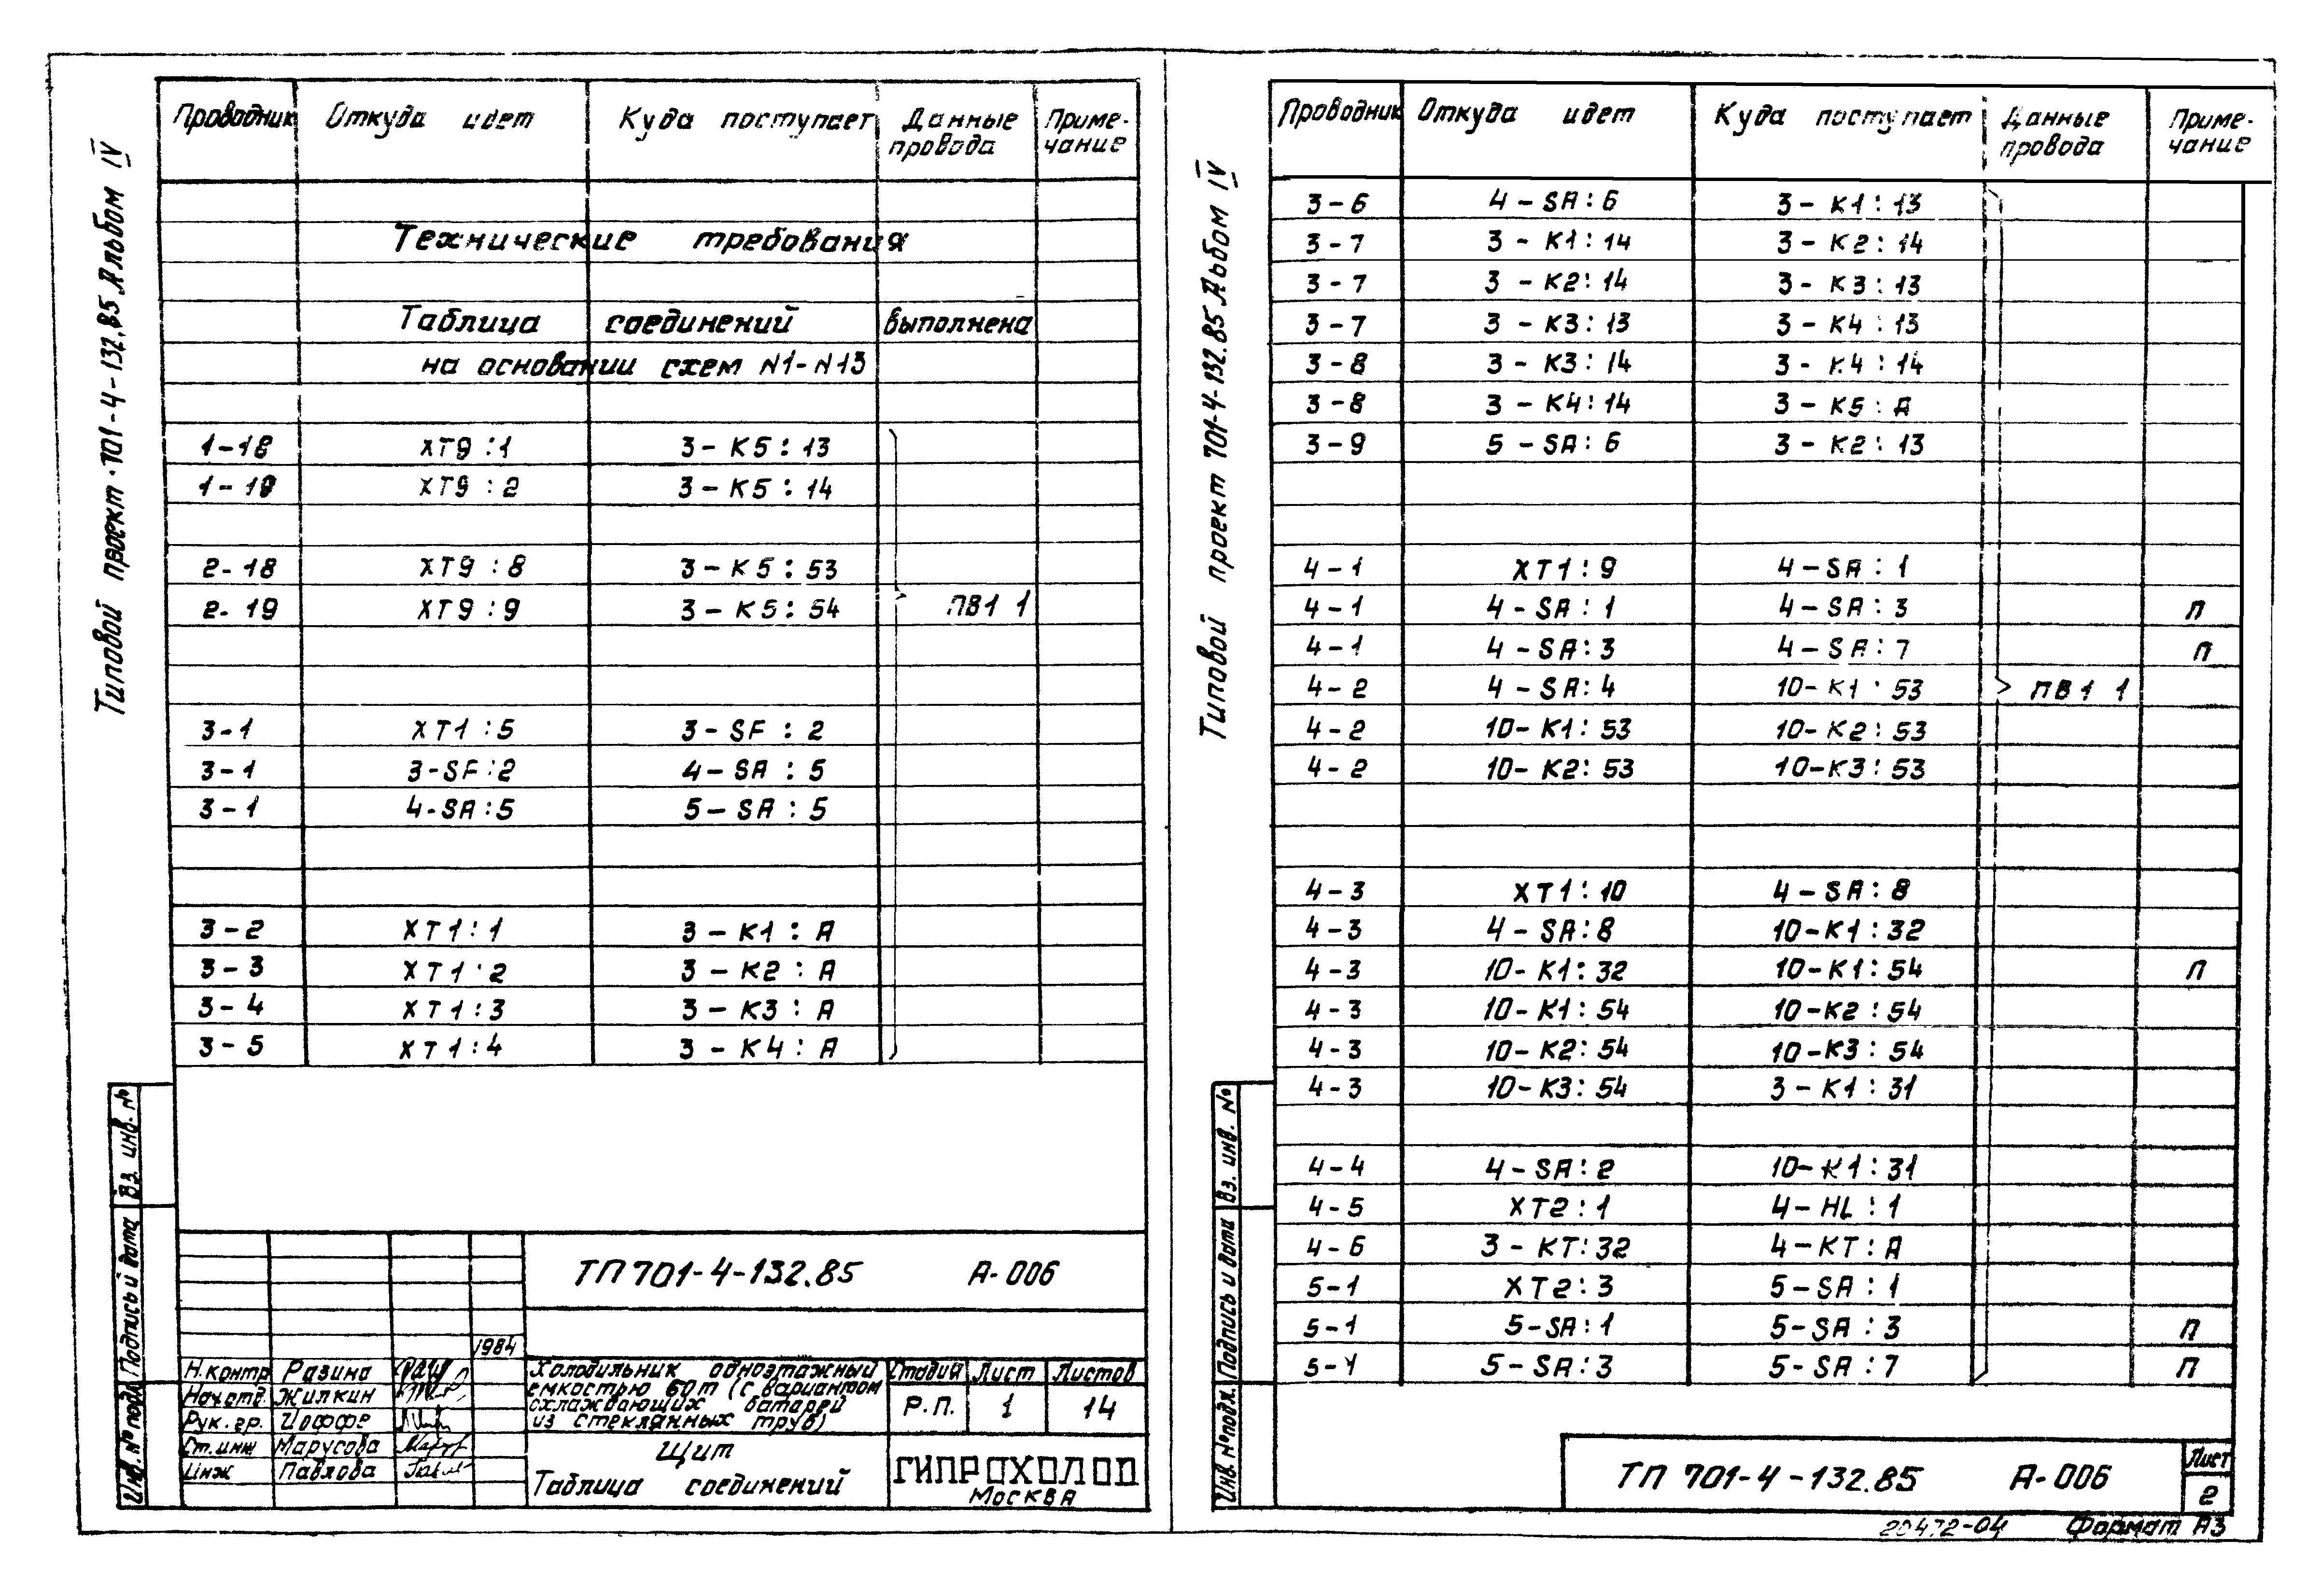 Типовой проект 701-4-132.85 Альбом IV
Проводник Откуда идет Куда поступает Данные провода Примечание
Технические требования
Таблица соединений выполнена
на основании схем N1-N13
1-18 XT9:1 3-K5:13
1-19 XT9:2 3-K5:14
2-18 XT9:8 3-K5:53
2-19 XT9:9 3-K5:54 ПВ1 1
3-1 XT1:5 3-SF:2
3-1 3-SF:2 4-SA:5
3-1 4-SA:5 5-SA:5
3-2 XT1:1 3-K1:A
3-3 XT1:2 3-K2:A
3-4 XT1:3 3-K3:A
3-5 XT1:4 3-K4:A
Инв. № подл. Подпись и дата Вз. инв. №
ТП 701-4-132.85 А-006
1984
Н.контр Разина
Нач.отд. Жилкин
Рук.гр. Иоффе
Ст.инж Марусова
Инж Павлова
Холодильник одноэтажный
емкостью 60т (с вариантом
охлаждающих батарей
из стеклянных труб)
Стадия Лист Листов
Р.П. 1 14
Щит
Таблица соединений
ГИПРОХОЛОД
Москва
Типовой проект 701-4-132.85 Альбом IV
Проводник Откуда идет Куда поступает Данные провода Примечание
3-6 4-SA:6 3-K1:13
3-7 3-K1:14 3-K2:14
3-7 3-K2:14 3-K3:13
3-7 3-K3:13 3-K4:13
3-8 3-K3:14 3-K4:14
3-8 3-K4:14 3-K5:A
3-9 5-SA:6 3-K2:13
4-1 XT1:9 4-SA:1
4-1 4-SA:1 4-SA:3 П
4-1 4-SA:3 4-SA:7 П
4-2 4-SA:4 10-K1:53 ПВ1 1
4-2 10-K1:53 10-K2:53
4-2 10-K2:53 10-K3:53
4-3 XT1:10 4-SA:8
4-3 4-SA:8 10-K1:32
4-3 10-K1:32 10-K1:54 П
4-3 10-K1:54 10-K2:54
4-3 10-K2:54 10-K3:54
4-3 10-K3:54 3-K1:31
4-4 4-SA:2 10-K1:31
4-5 XT2:1 4-HL:1
4-6 3-KT:32 4-KT:A
5-1 XT2:3 5-SA:1
5-1 5-SA:1 5-SA:3 П
5-1 5-SA:3 5-SA:7 П
Инв. № подл. Подпись и дата Вз. инв. №
ТП 701-4-132.85 А-006
Лист
2
20472-04 Формат А3